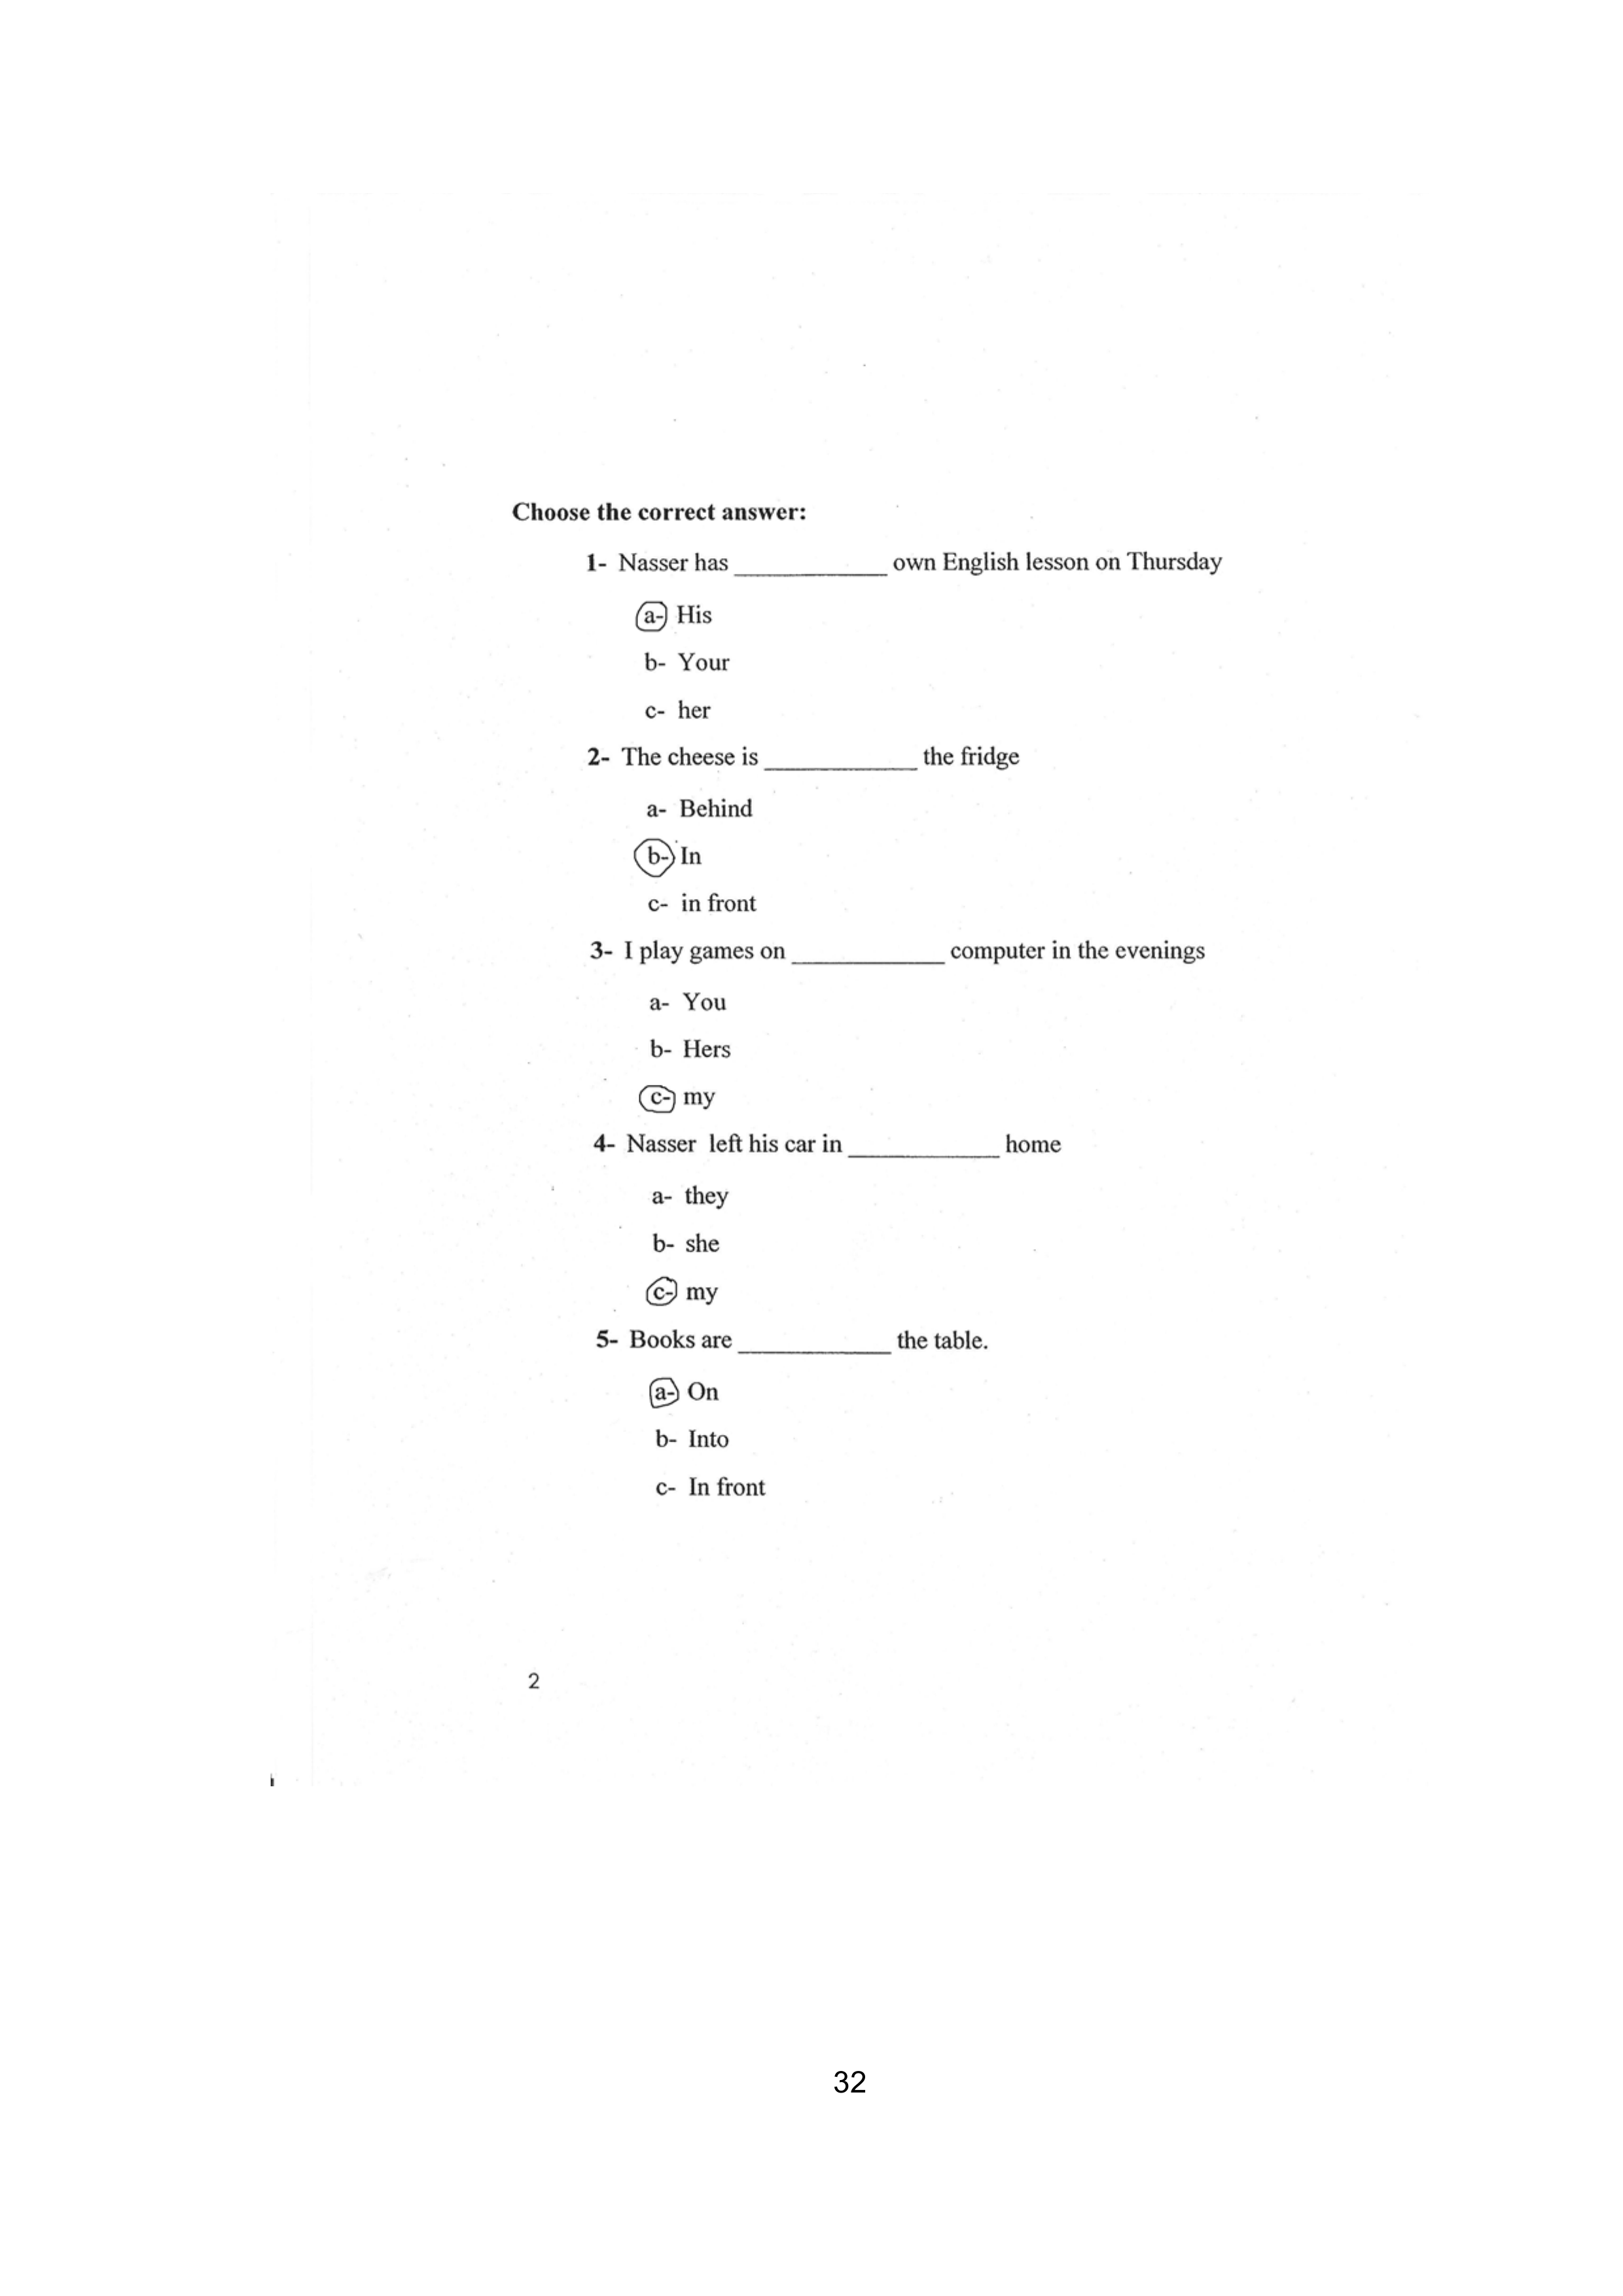 Choose the correct answer:
1- Nasser has ____________ own English lesson on Thursday
a- His
b- Your
c- her
2- The cheese is ____________ the fridge
a- Behind
b- In
c- in front
3- I play games on ____________ computer in the evenings
a- You
b- Hers
c- my
4- Nasser left his car in ____________ home
a- they
b- she
c- my
5- Books are ____________ the table.
a- On
b- Into
c- In front
2
32